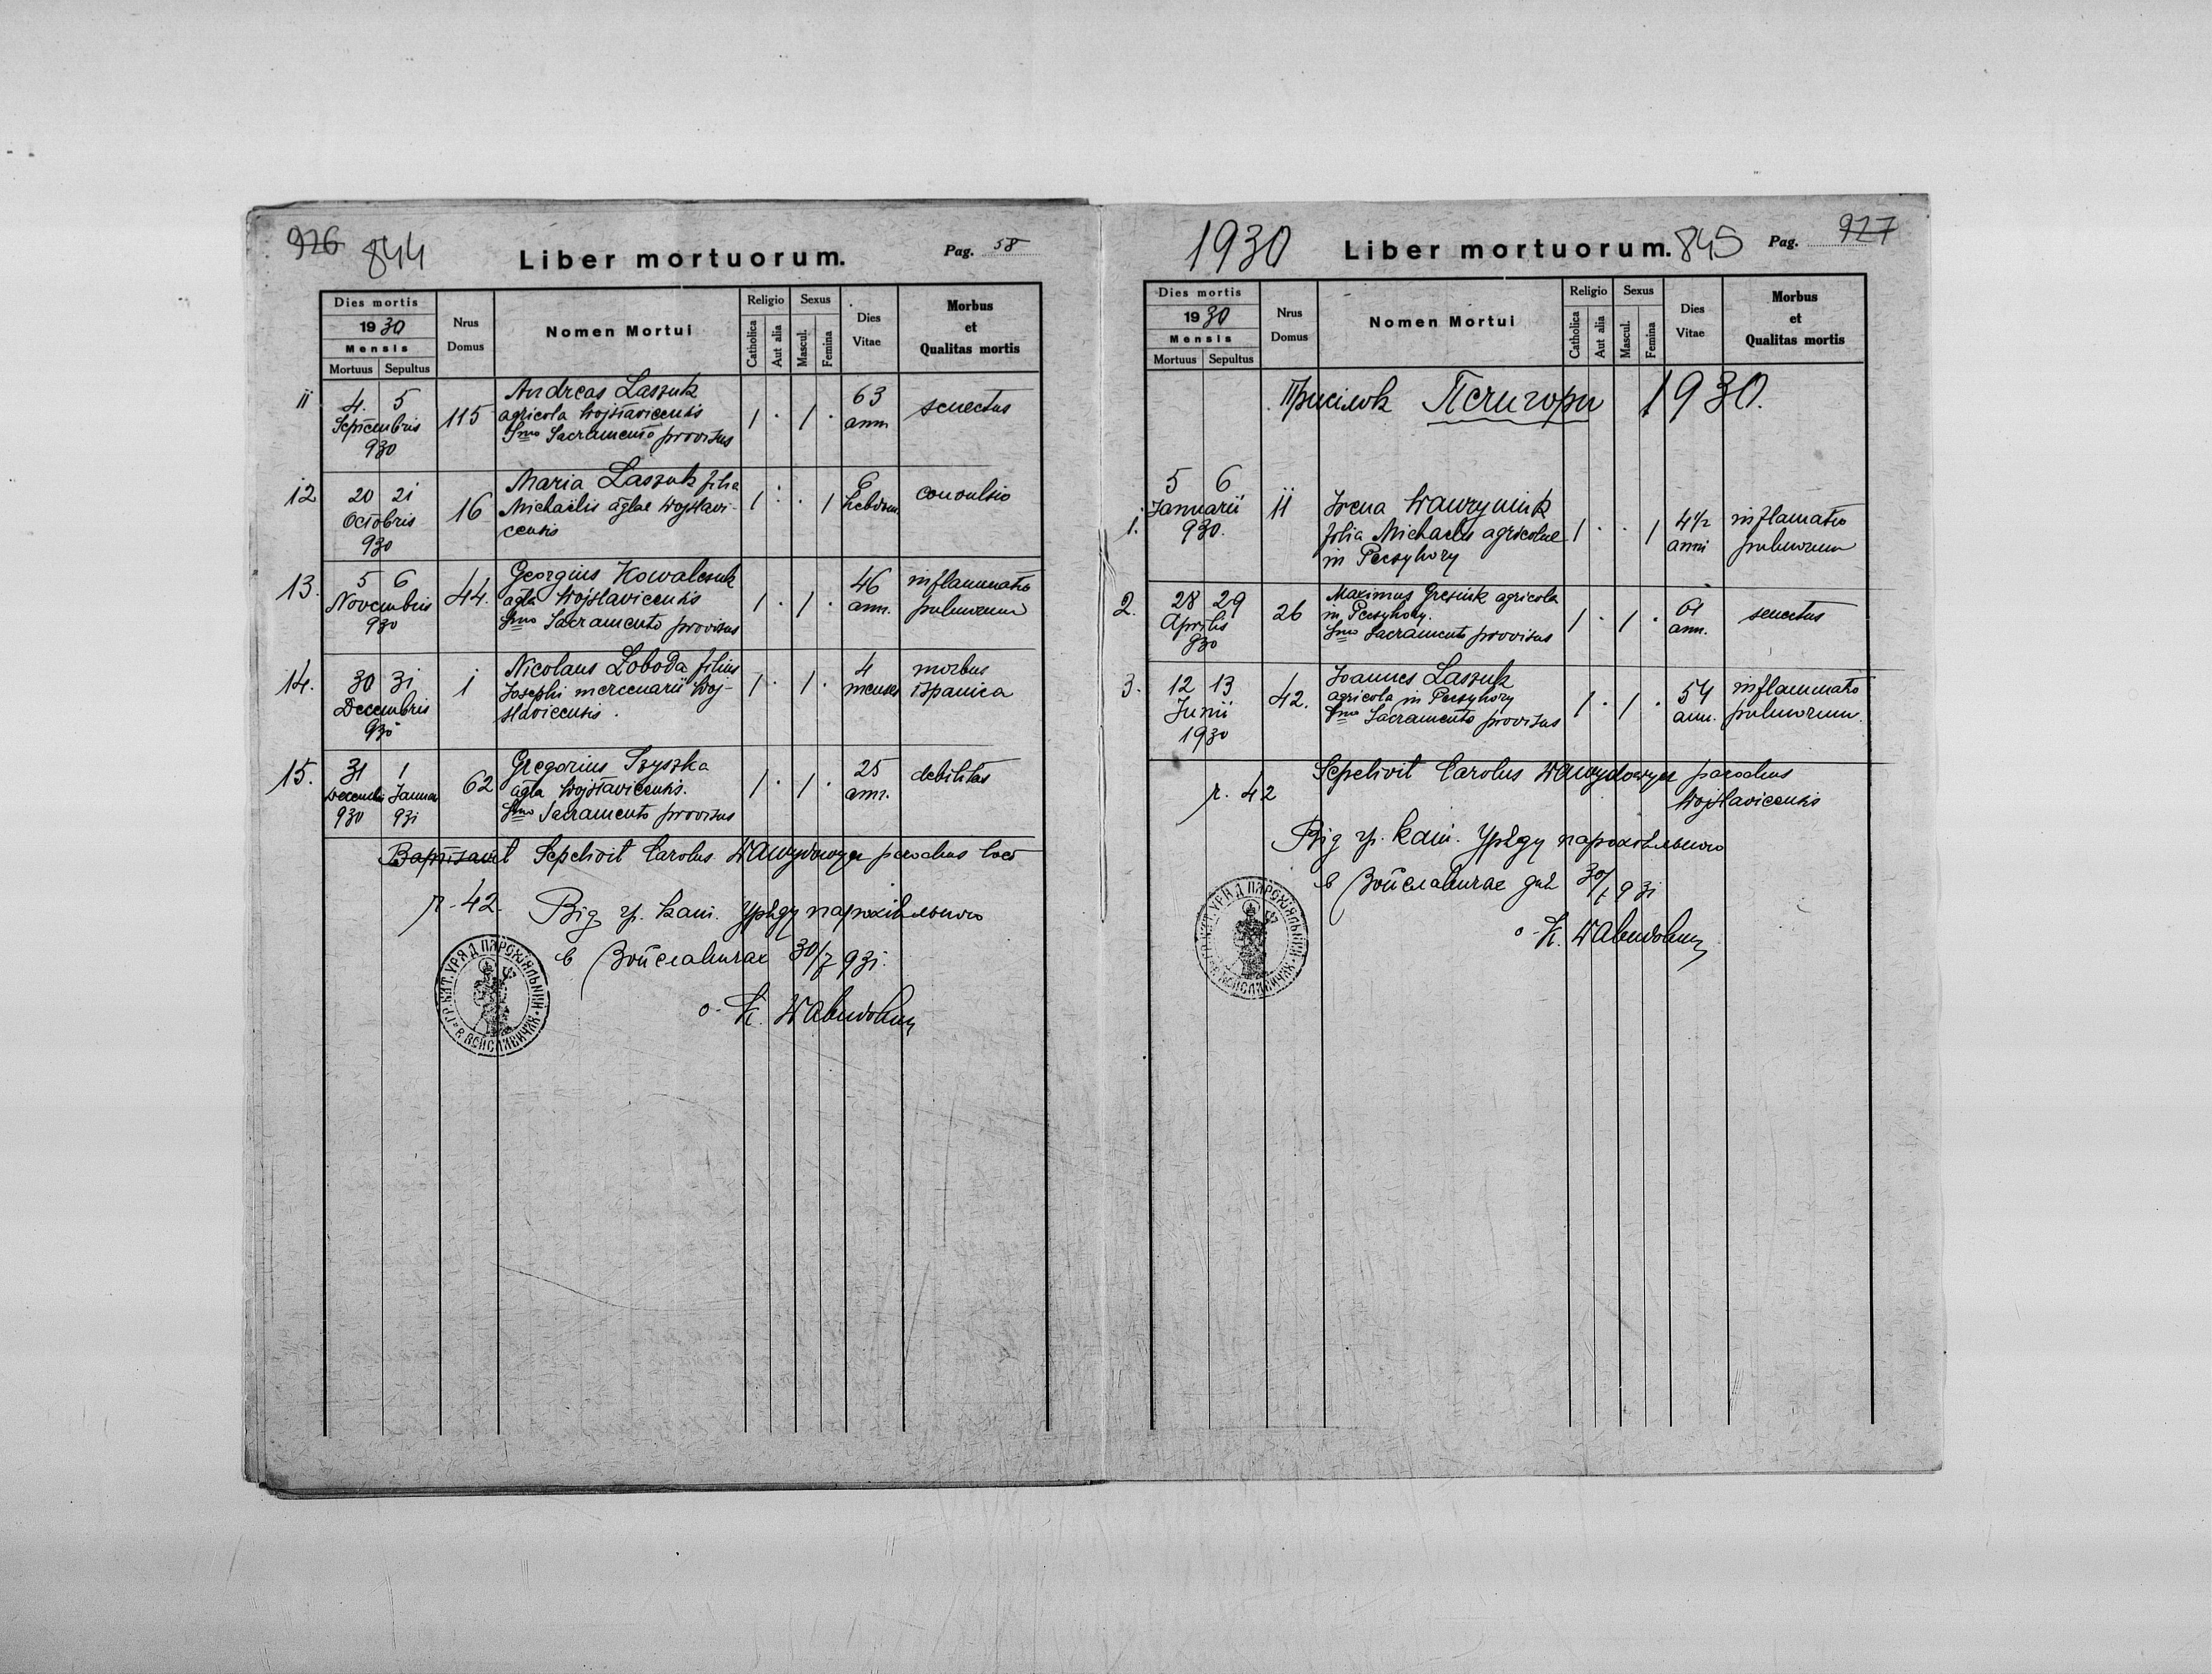 926 844
Liber mortuorum.
Pag. 58
Dies mortis
1930
Mensis
Mortuus Sepultus
Nrus Domus
Nomen Mortui
Religio
Catholica
Aut alia
Sexus
Mascul.
Femina
Dies Vitae
Morbus et Qualitas mortis
ii 4. 5 Septembris 930 115
Andreas Laszuk
agricola Wojsławicensis
Smo Sacramento provisus
1 . 1 . 63 ann. senectus
12 20 21 Octobris 930 16
Maria Laszuk filia
Michaëlis aglae Wojsławi-
censis
1 . . 1 6 hebdom. convulsio
13. 5 6 Novembris 930 44.
Georgius Kowalczuk
agla Wojsławicensis
Smo Sacramento provisus
1 . 1 . 46 ann. inflammatio pulmonum
14. 30 31 Decembris 930 i
Nicolaus Łoboda filius
Josephi mercenarii Woj-
sławicensis.
1 . 1 . 4 menses morbus ispanica
15. 31 Decembr 930 1 Januar 931 62
Gregorius Szyszka
agla Wojsławicensis.
Smo Sacramento provisus
1 . 1 . 25 ann. debilitas
Baptisavit Sepelivit Carolus parochus loci
r. 42. Від гр. кат. Уряду парохіяльного
в Войславичах 30/7 931.
о. К.
1930
Liber mortuorum. 845
Pag. 927
Dies mortis
1930
Mensis
Mortuus Sepultus
Nrus Domus
Nomen Mortui
Religio
Catholica
Aut alia
Sexus
Mascul.
Femina
Dies Vitae
Morbus et Qualitas mortis
Присілок Псигори 1930.
1. 5 6 Januarii 930. 11
Irena Wawryniuk
filia Michaelis agricolae
in Pecsyhory
1 . . 1 4 1/2 anni inflamatio pulmonum
2. 28 29 Aprilis 930 26
Maximus agricola
in Pecsyhory.
Smo Sacramento provisus
1 . 1 . 61 ann. senectus
3. 12 13 Junii 1930 42.
Joannes Laszuk
agricola in Pecsyhory
Smo Sacramento provisus
1 . 1 . 54 ann. inflammatio pulmonum.
Sepelivit Carolus parochus
Wojsławicensis
r. 42
Від гр. кат. Уряду парохіяльного
в Войславичах дня 30/7 931
о. К.